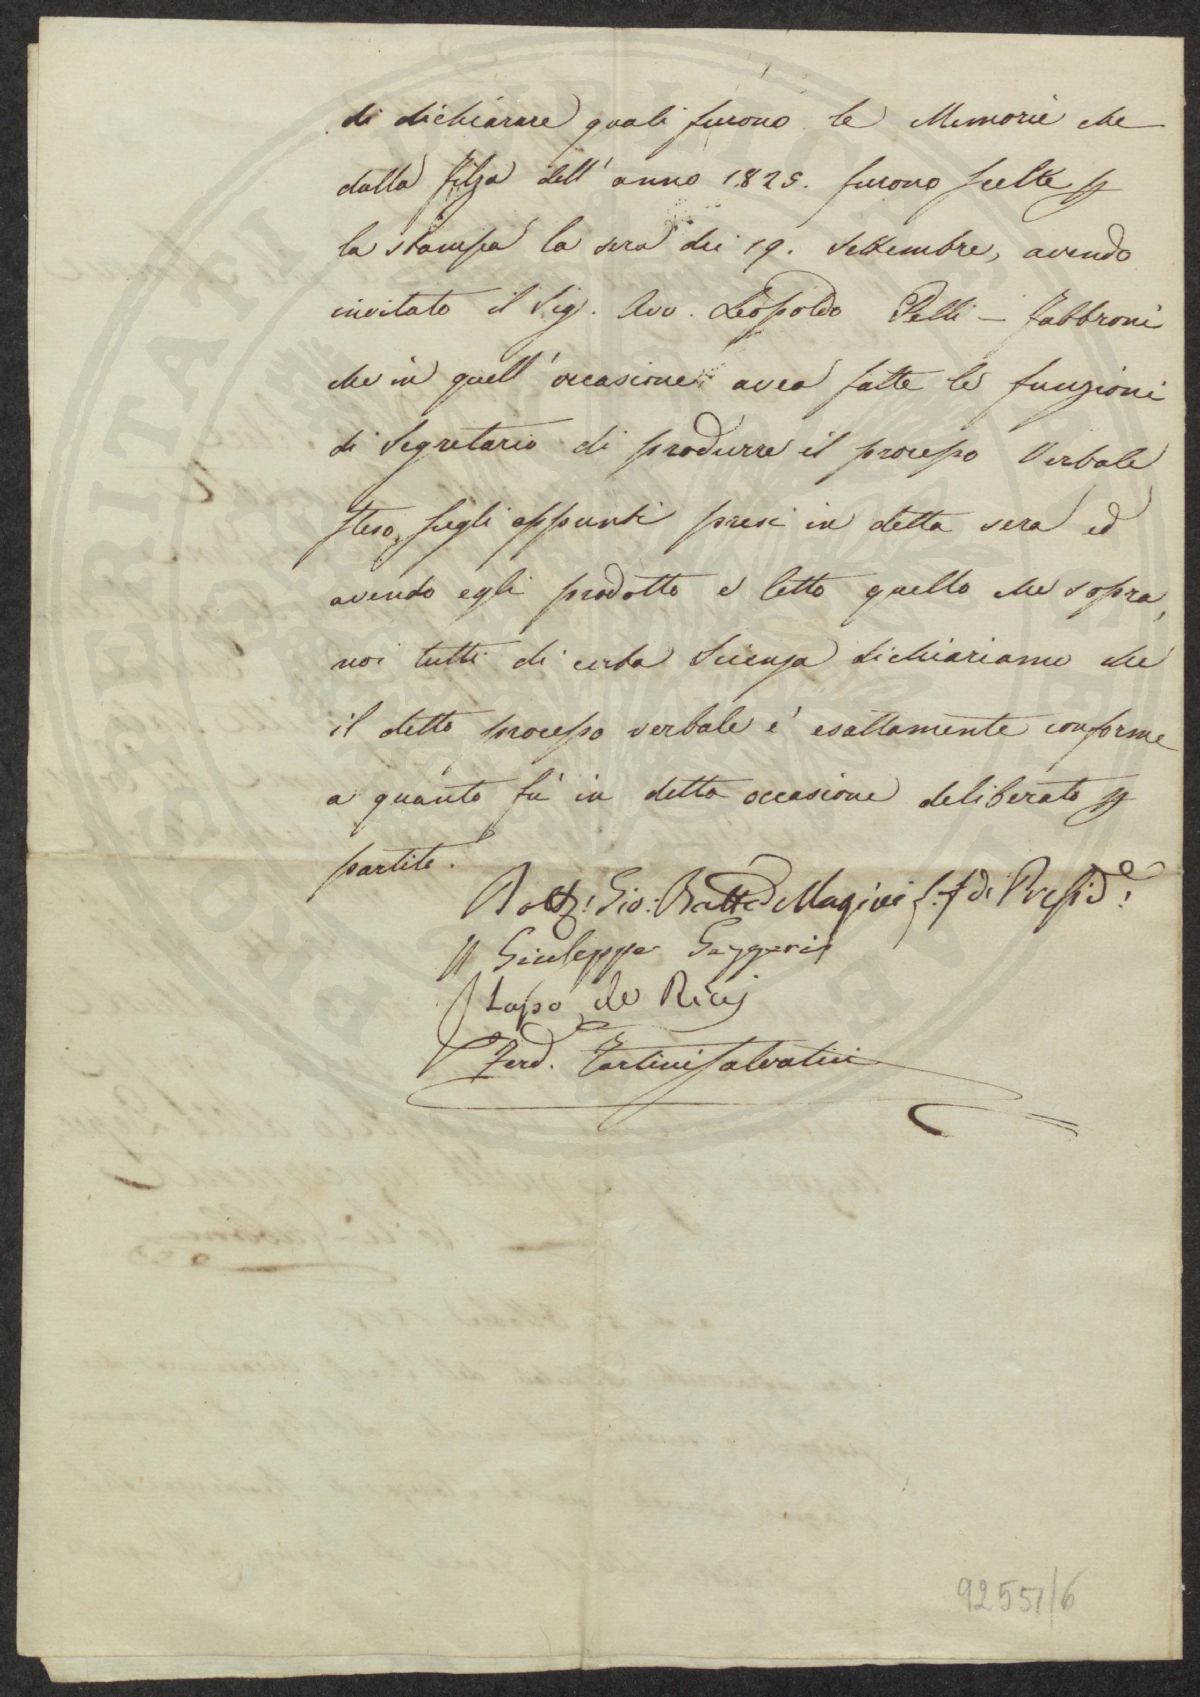 di dichiarare quali furono le Memorie che
dalla filza dell' anno 1825. furono scelte p
la stampa la sera dei 19. Settembre, avendo
invitato il Sig. Avv. Leopoldo Pelli - Fabbroni
che in quell' occasione avea fatte le funzioni
di Segretario di produrre il processo Verbale
steso, sugli appunti presi in detta sera ed
avendo egli prodotto e letto quello che sopra,
noi tutti di certa Scienza dichiariamo che
il detto processo verbale è esattamente conforme
a quanto fù in detta occasione deliberato p
partito.
Gio: Batta Magini f. f. di Presid.e
Giuseppe Gazzeri
Lapo de Ricci
Ferd. Tartini Salvatici
92551/6